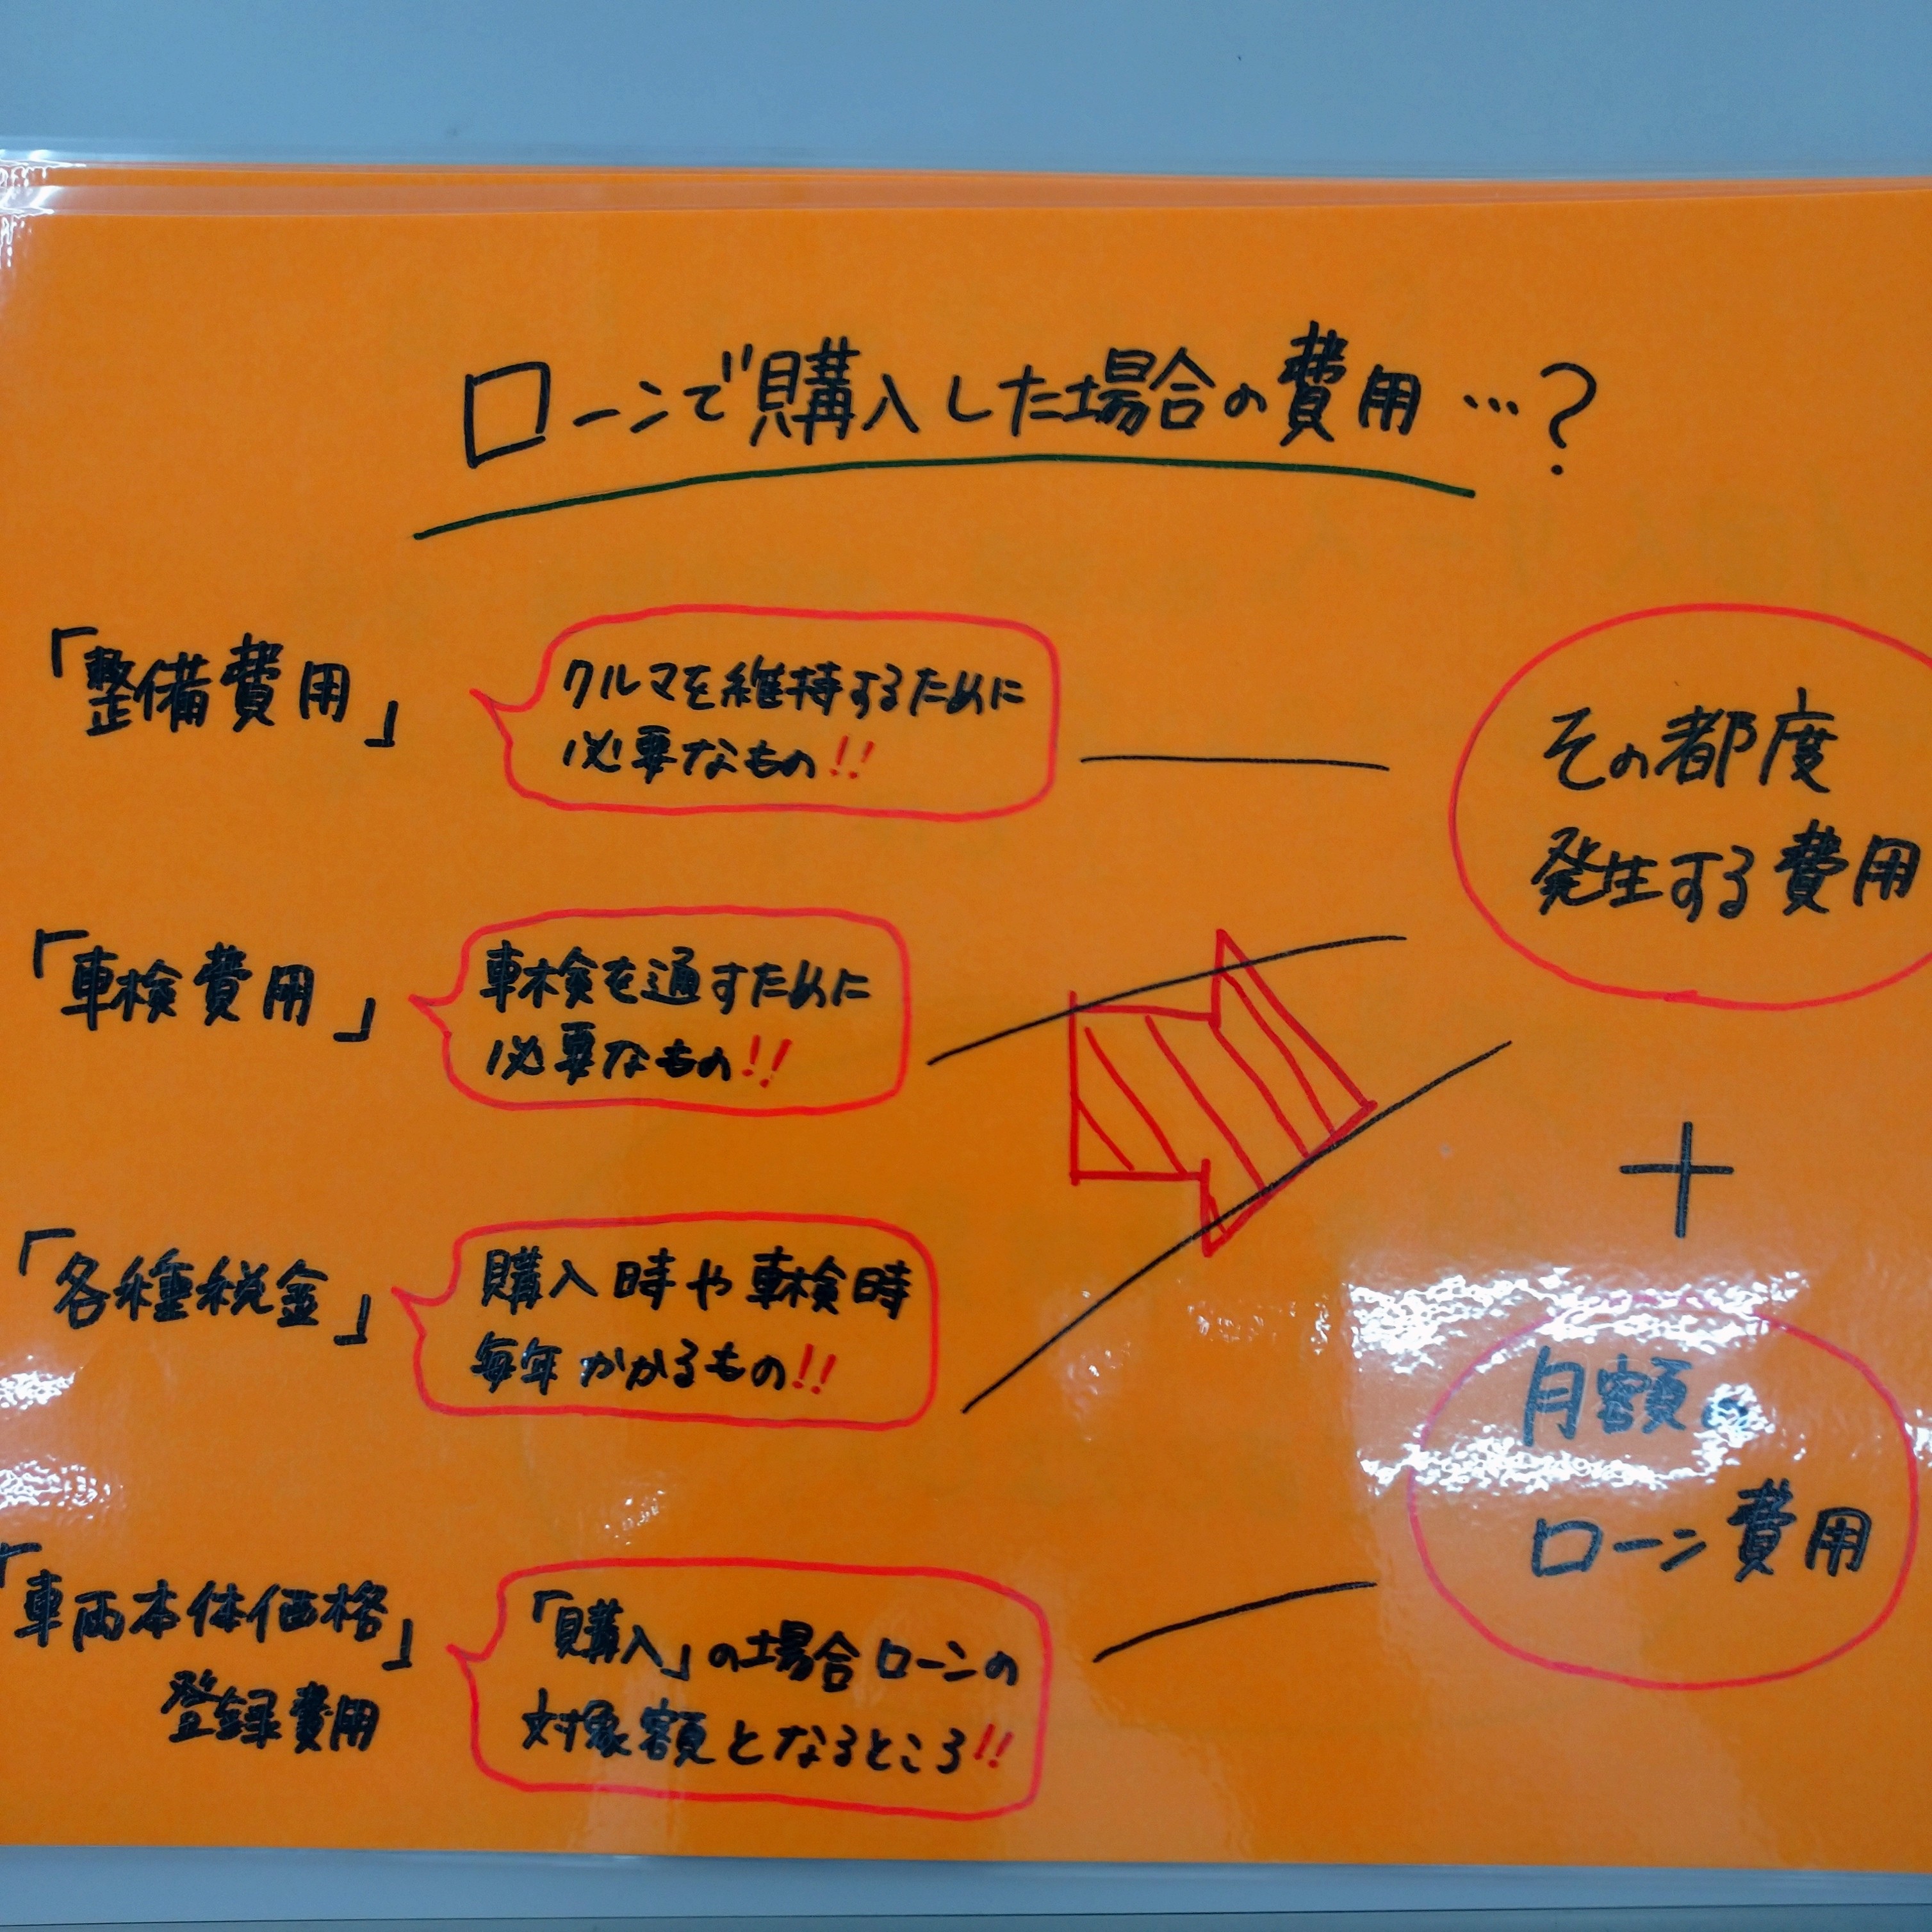 ローンで購入した場合の費用…?
「整備費用」
クルマを維持するために
必要なもの!!
その都度
発生する費用
「車検費用」
車検を通すために
必要なもの!!
+
「各種税金」
購入時や車検時
毎年かかるもの!!
月額の
ローン費用
「車両本体価格」
登録費用
「購入」の場合ローンの
対象額となるところ!!